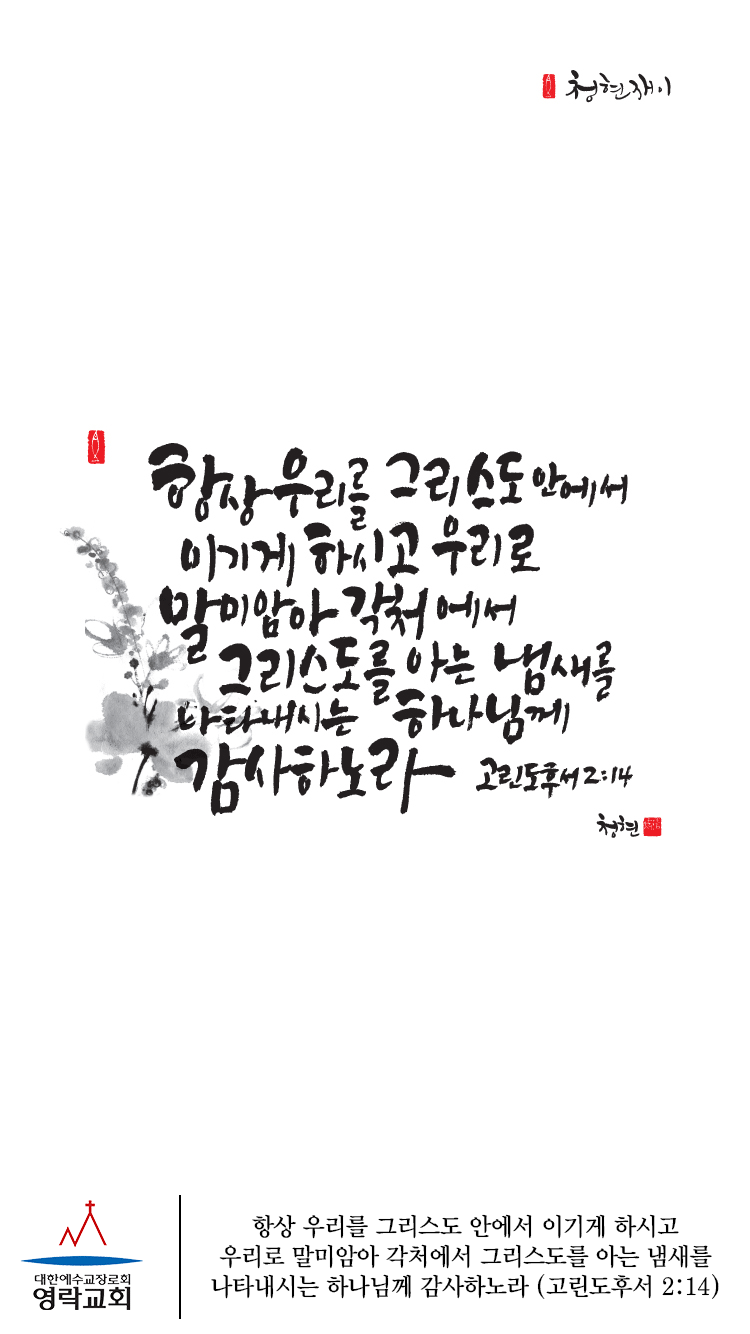 청현재이
항상 우리를 그리스도 안에서
이기게 하시고 우리로
말미암아 각처에서
그리스도를 아는 냄새를
나타내시는 하나님께
감사하노라 고린도후서 2:14
청현
대한예수교장로회
영락교회
항상 우리를 그리스도 안에서 이기게 하시고
우리로 말미암아 각처에서 그리스도를 아는 냄새를
나타내시는 하나님께 감사하노라 (고린도후서 2:14)